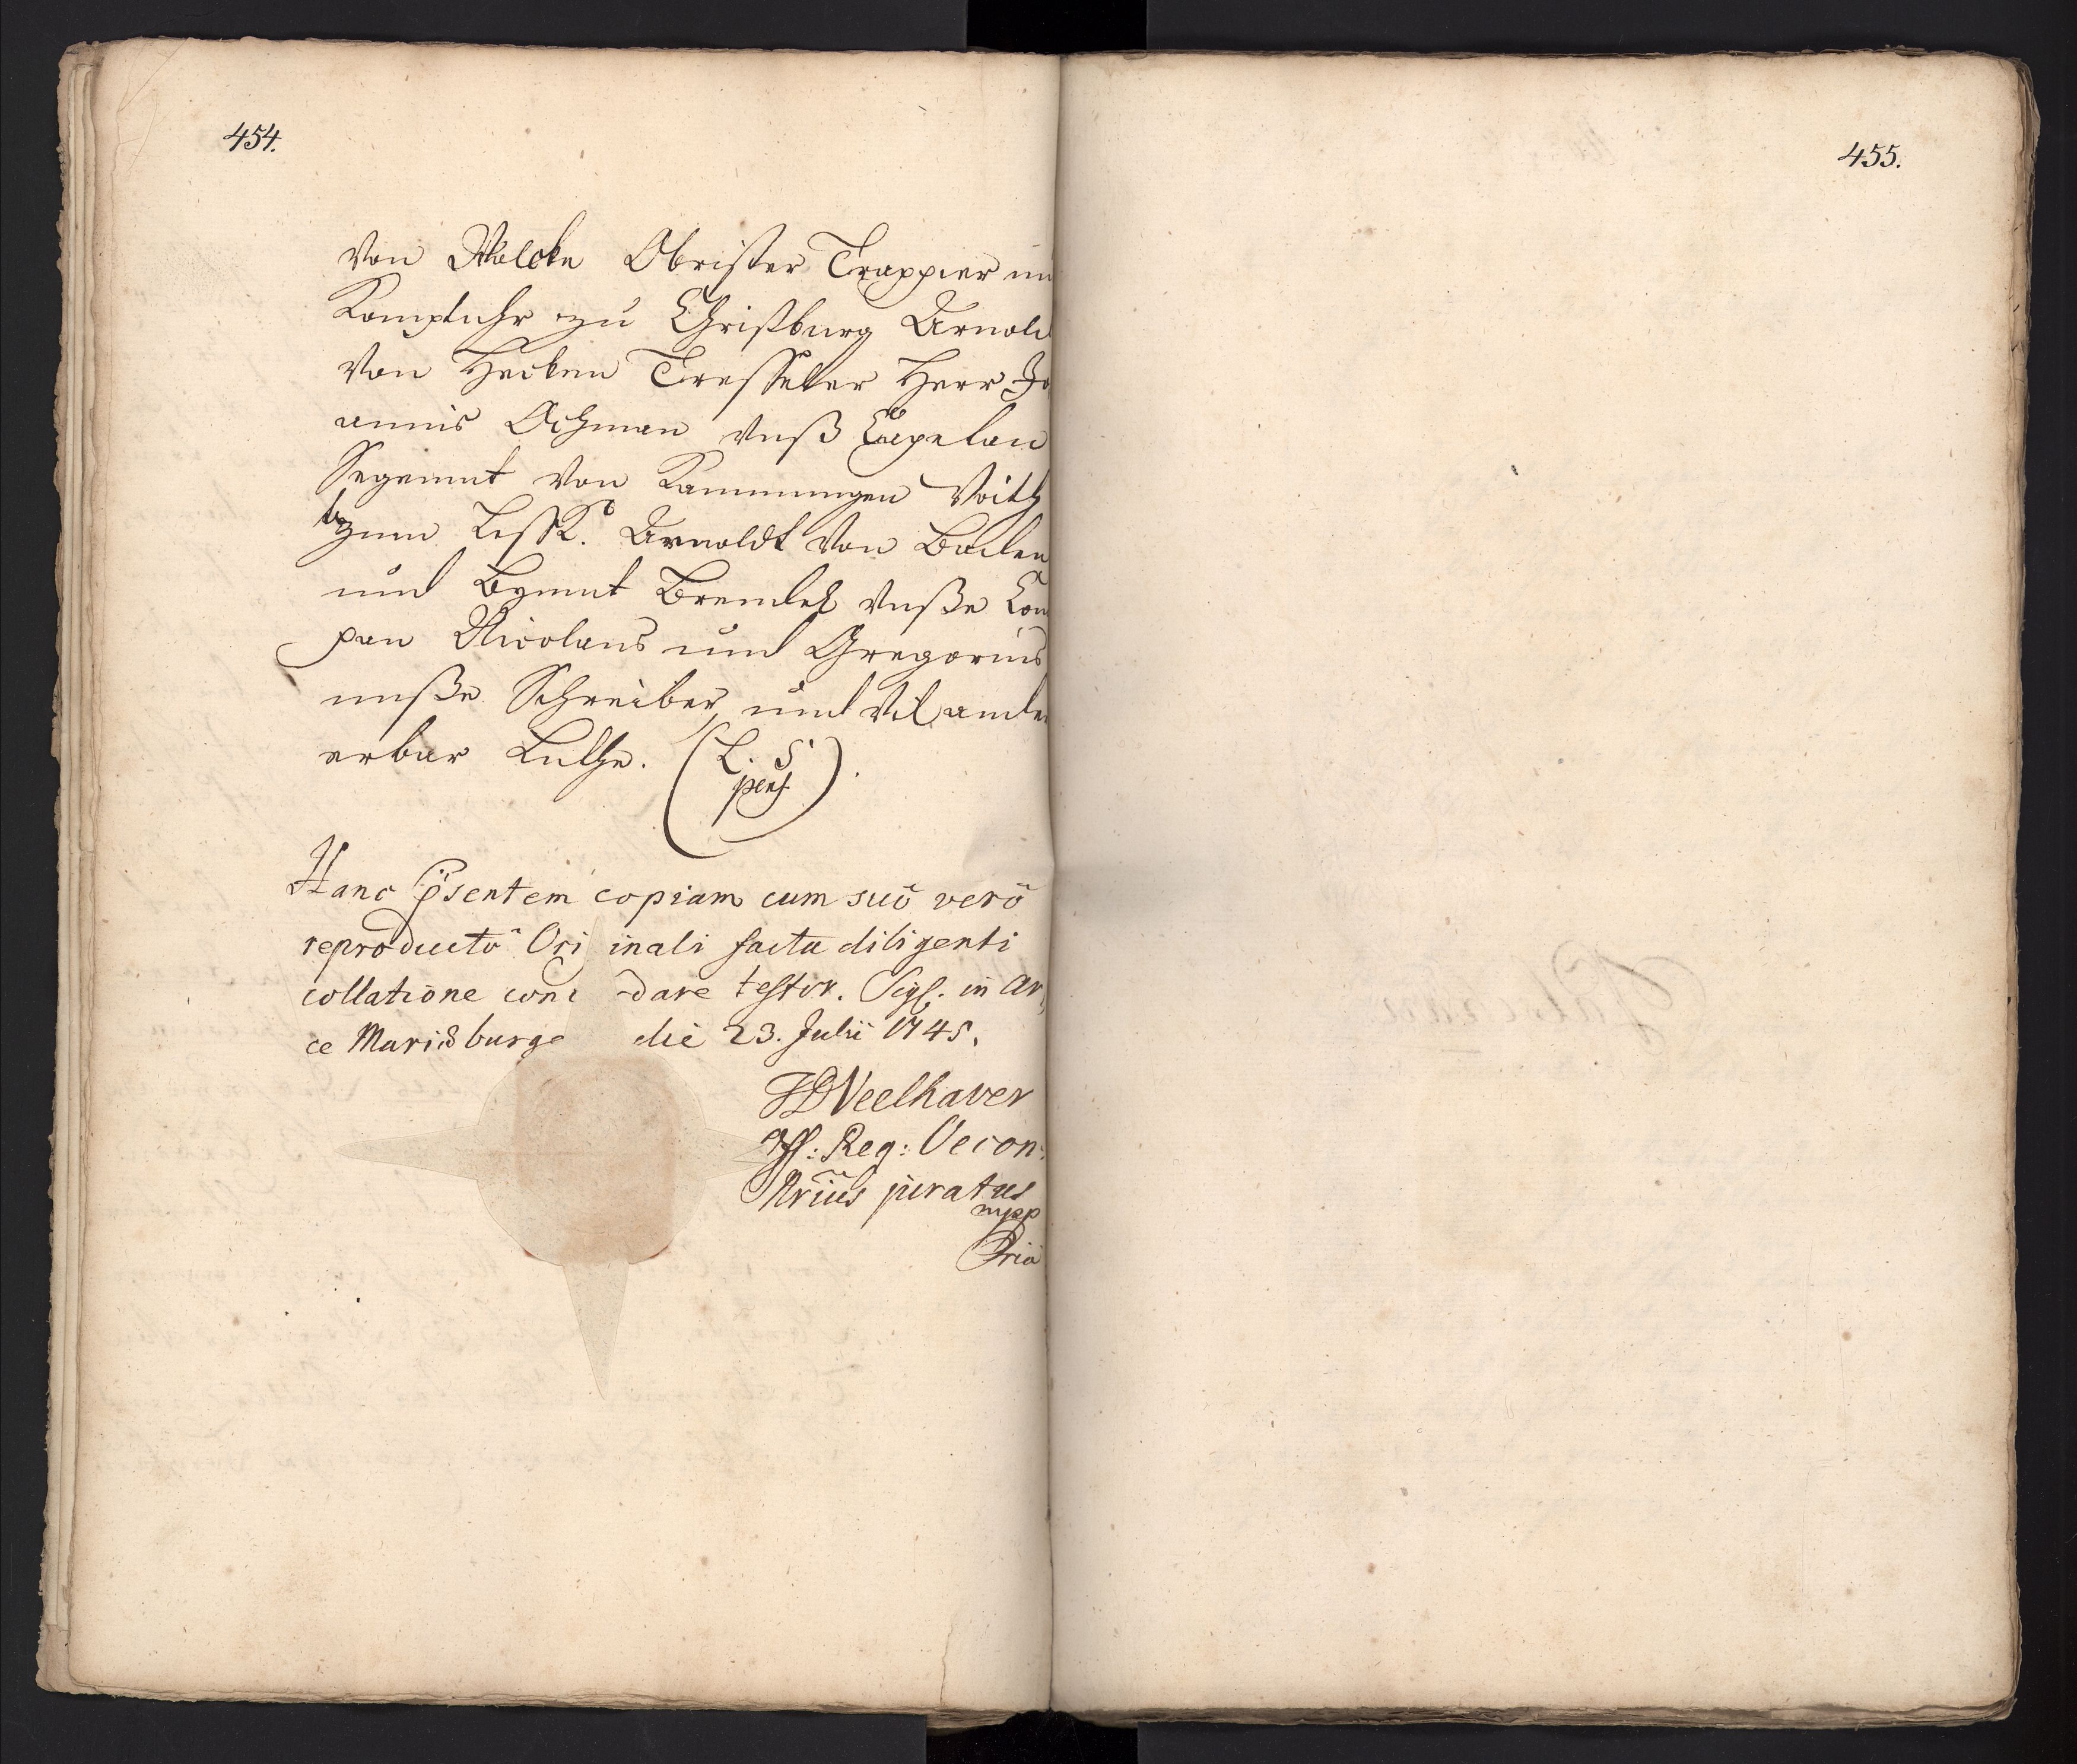 454.
von Wolcke Obrister Trappier un
Kompthur zu Christburg Arnold
von Hecken Tresseler Herr Jo
annis Ochman unß Capelan
Segemut von Rammungen Voith
zum Lessk. Arnoldt von Baden
und Bemut Brendel unße Com
pan Nicolaus und Gregorius
unße Schreiber und vil ander
erbar Luthe. (L. S.
pens.).
Hanc p̃sentem copiam cum suõ verõ
reproductõ Ori inali facta diligenti
collatione conc dare testor. Sigl. in Ar,
ce Mariæburge die 23. Julii 1745.
Veelhaver
Off: Reg: Oecon:
Nrius juratus
mpp
pria
455.